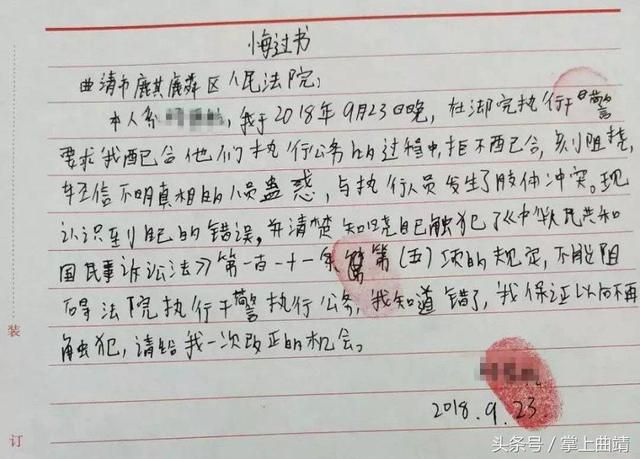 悔过书
曲靖市麒麟区人民法院:
本人系，我于2018年9月23日晚，在法院执行干警
要求我配合他们执行公务的过程中，拒不配合，刻阻挠，
轻信不明真相的人员蛊惑，与执行人员发生了肢体冲突。现
认识到自己的错误，并清楚知晓自己触犯了《中华人民共和
国民事诉讼法》第一百一十一条第(五)项的规定，不能阻
碍法院执行干警执行公务，我知道错了，我保证以后不再
触犯，请给我一次改正的机会。
2018.9.23
装
订
头条号/掌上曲靖